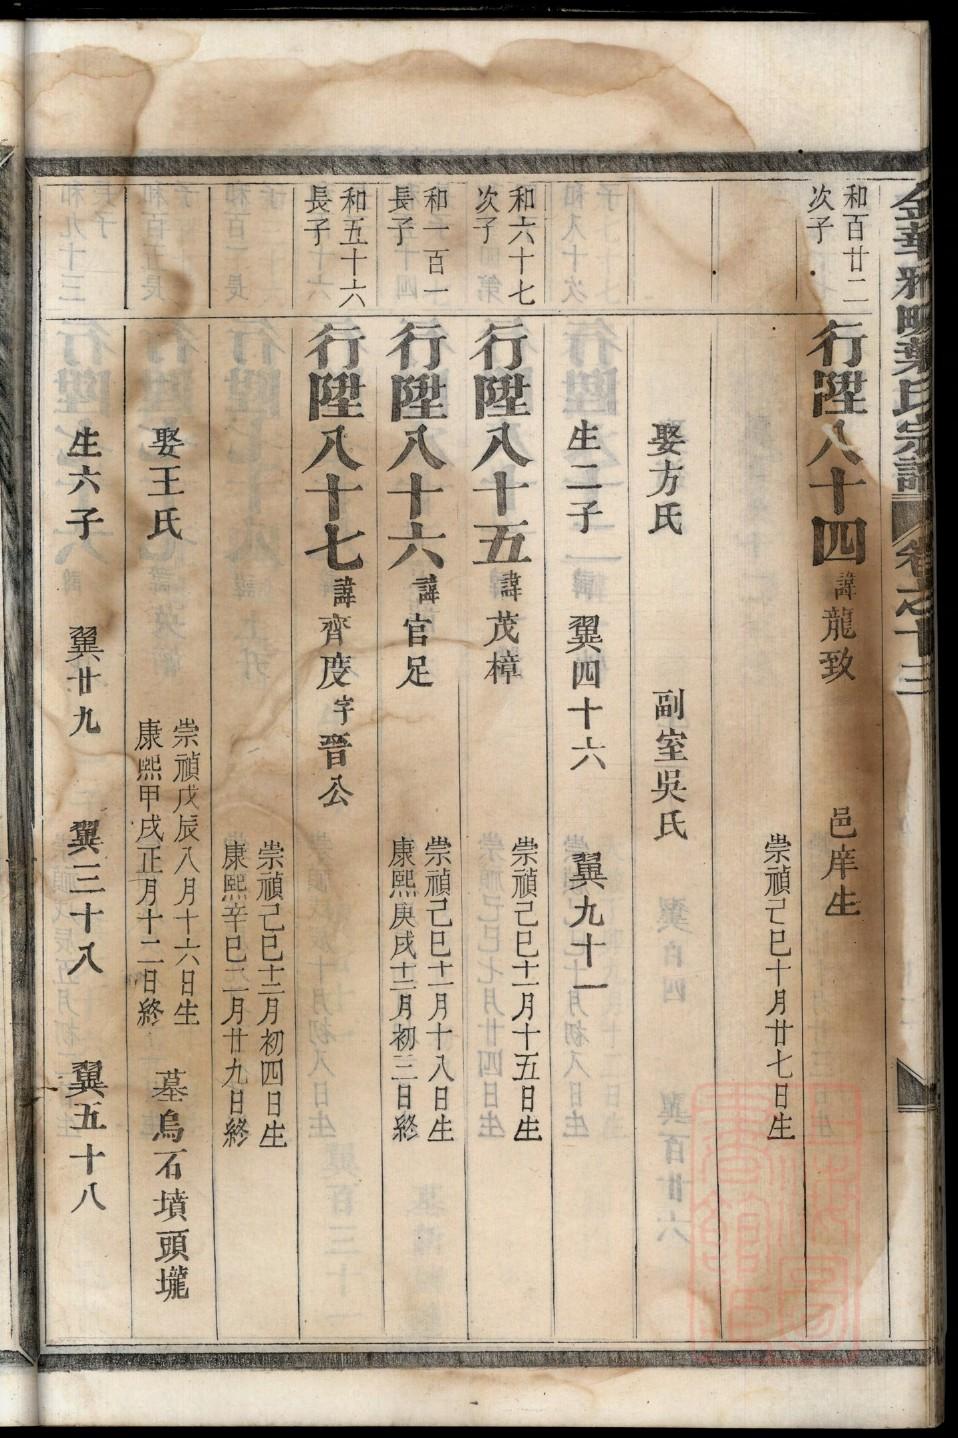 金華雅畈葉氏宗譜 卷之十三
和百廿二
次子
行陞八十四 諱龍致 邑庠生
崇禎己巳十月廿七日生
娶方氏 副室吳氏
生二子 翼四十六 翼九十一
和六十七
次子
行陞八十五 諱茂樟
崇禎己巳十一月十五日生
和一百一
長子
行陞八十六 諱官足
崇禎己巳十一月十八日生
康熙庚戌十二月初三日終
和五十六
長子
行陞八十七 諱齊度 字晉公
崇禎己巳十二月初四日生
康熙辛巳二月廿九日終
娶王氏
崇禎戊辰八月十六日生
康熙甲戌正月十二日終
墓烏石墳頭壠
生六子 翼廿九 翼三十八 翼五十八